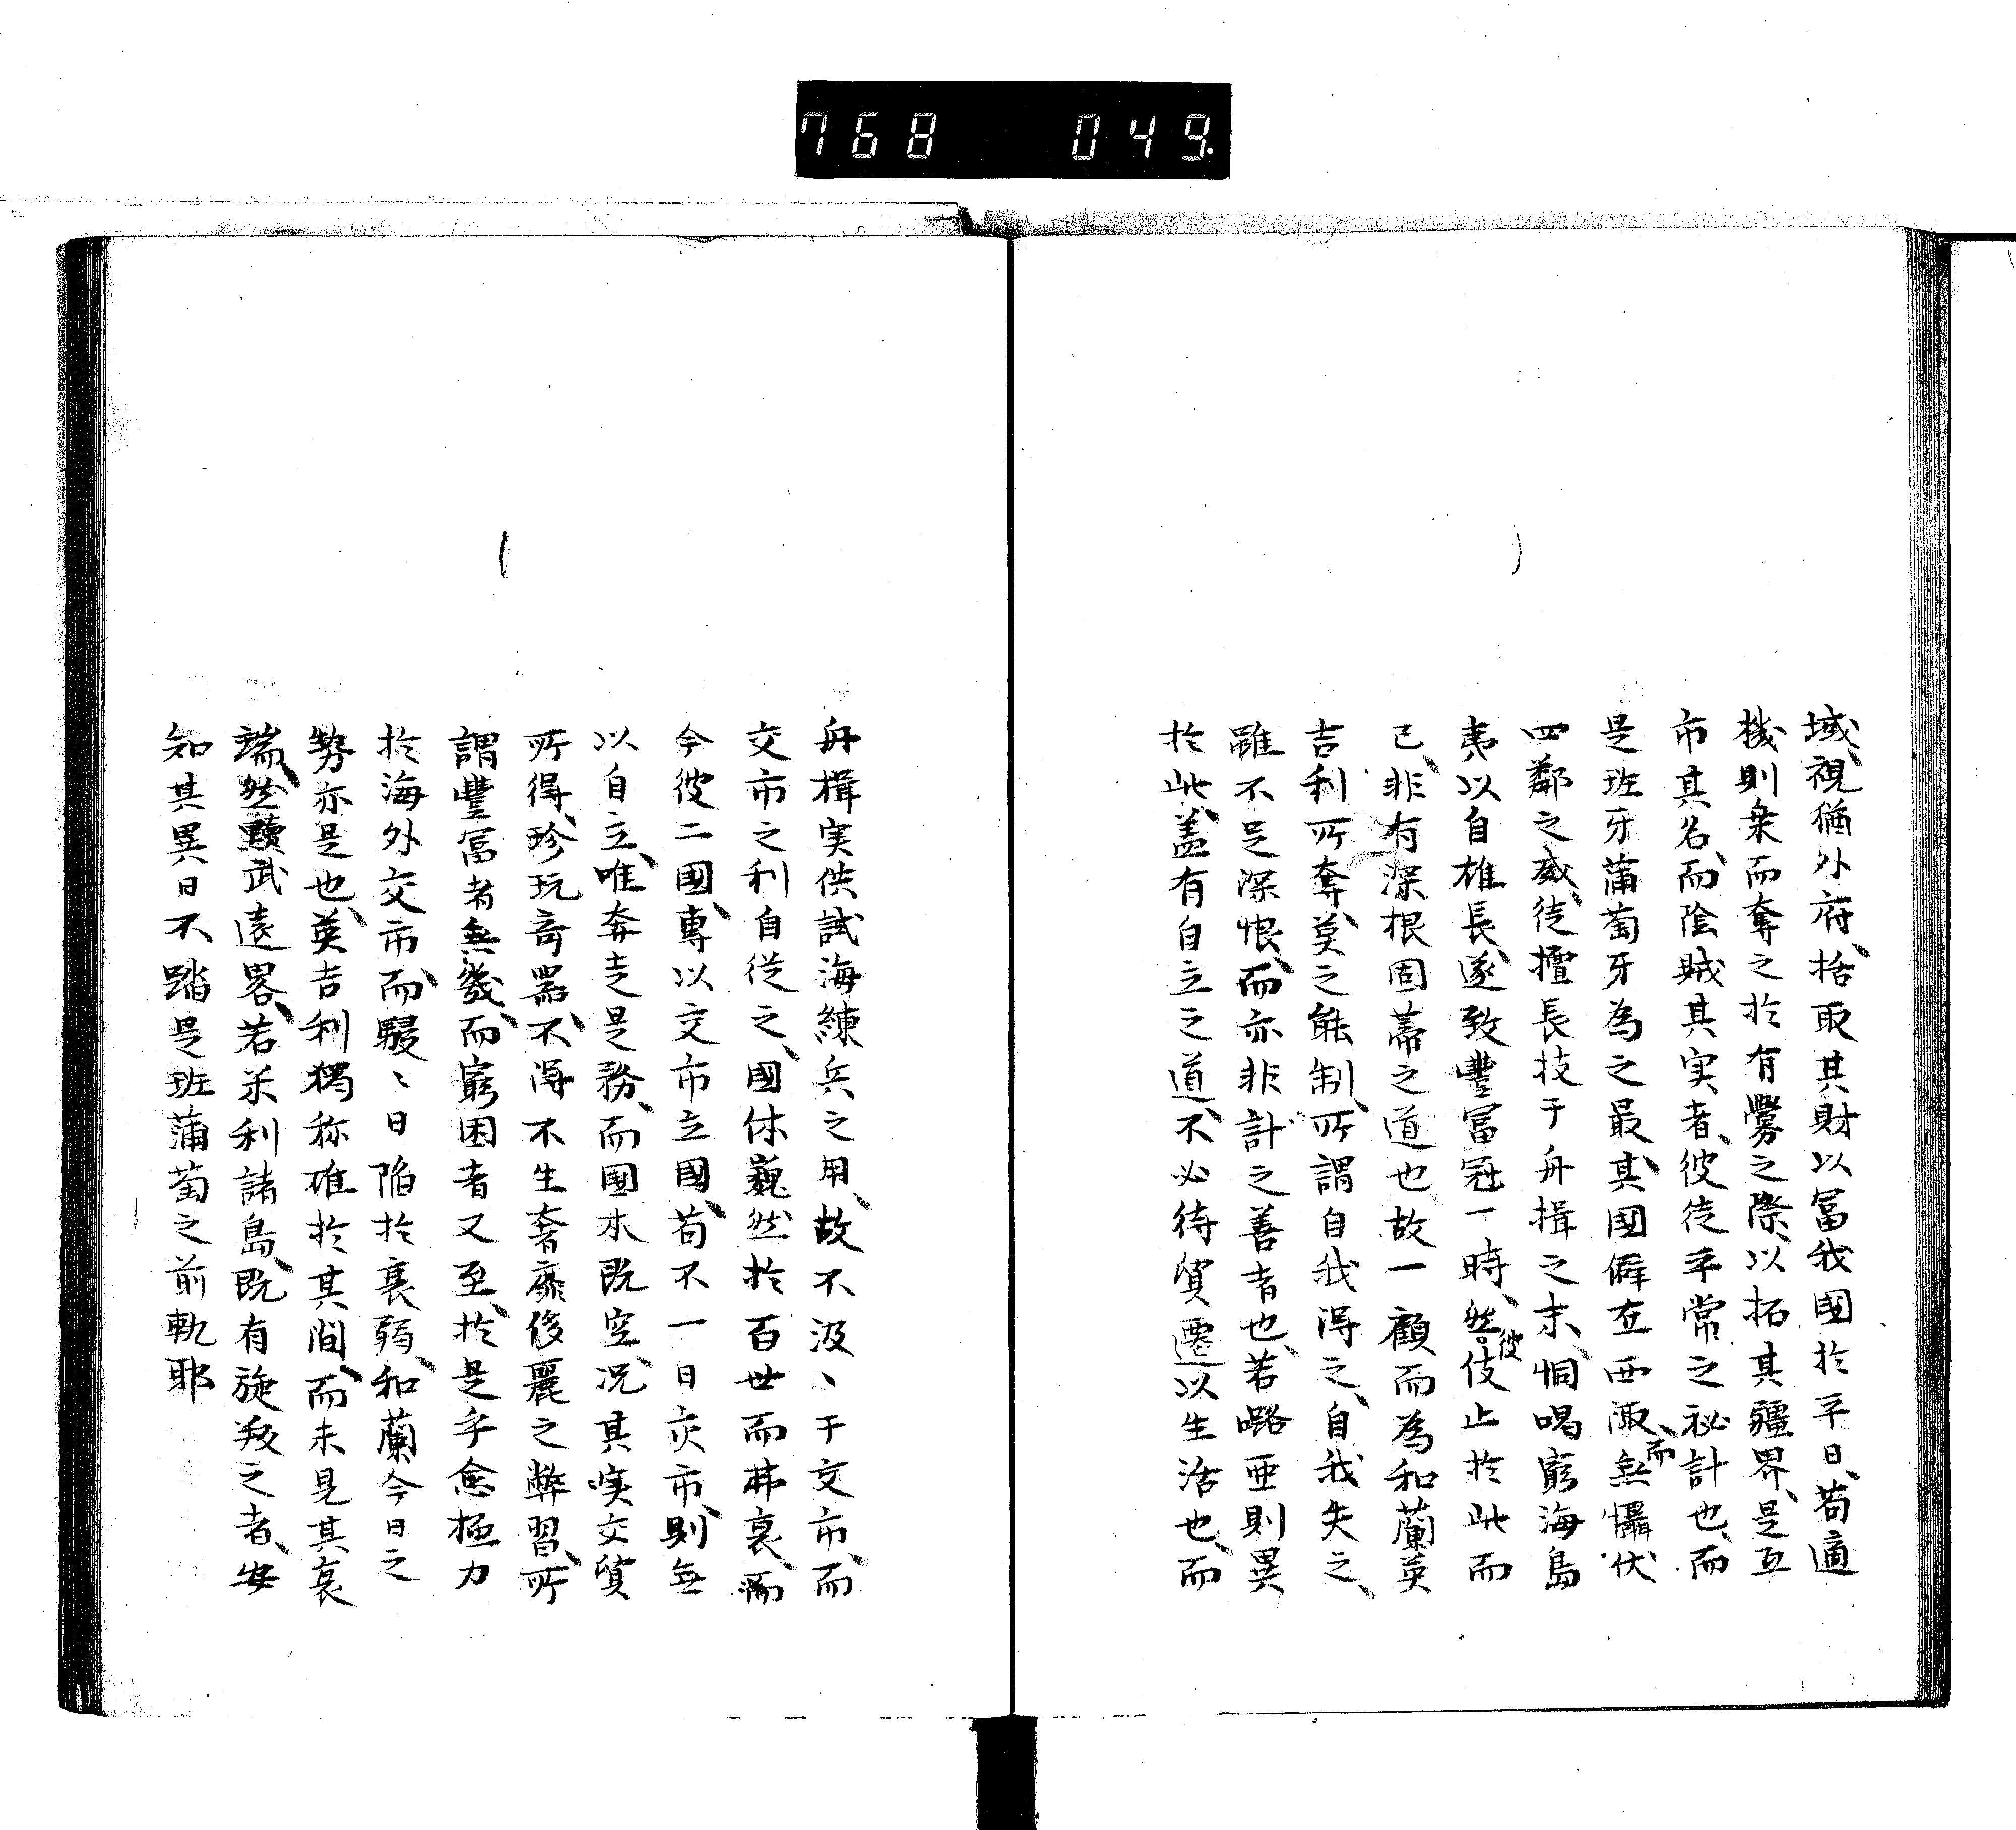 768 049.
域、視猶外府、括取其財以冨我國於平日、苟適
機則乗而奪之於有釁之際、以拓其疆界、是互
市其名、而陰賊其実者、彼徒平常之祕計也、而
是班牙蒲萄牙為之最、其國僻在西陬、而無懾伏
四鄰之威、徒擅長技于舟揖之末、恫喝窮海島
夷以自雄長、遂致豐冨冠一時、然彼伎止於此而
已、非有深根固蒂之道也故一顧而為和蘭英
吉利所奪、莫之能制、所謂自我得之、自我失之、
雖不足深恨、而亦非計之善者也、若嚕亜則異
於此、盖有自立之道、不必待貿遷以生活也、而
舟楫実供試海練兵之用、故不汲〻于交市、而
交市之利自従之、國体巍然於百世而弗衰、而
今彼二國、專以交市立國、苟不一日交市、則無
以自立、唯奔走是務、而國本既空、况其喫交貿
所得、珍玩奇器、不得不生奢靡侈麗之弊習、所
謂豐冨者無幾、而窮困者又至、於是乎愈極力
於海外交市、而駸〻日陥於衰弱、和蘭今日之
勢亦是也、英吉利獨称雄於其間、而未見其衰
端、然黷武遠畧、若米利諸島、既有旋叛之者、安
知其異日不踏是班蒲萄之前軌耶